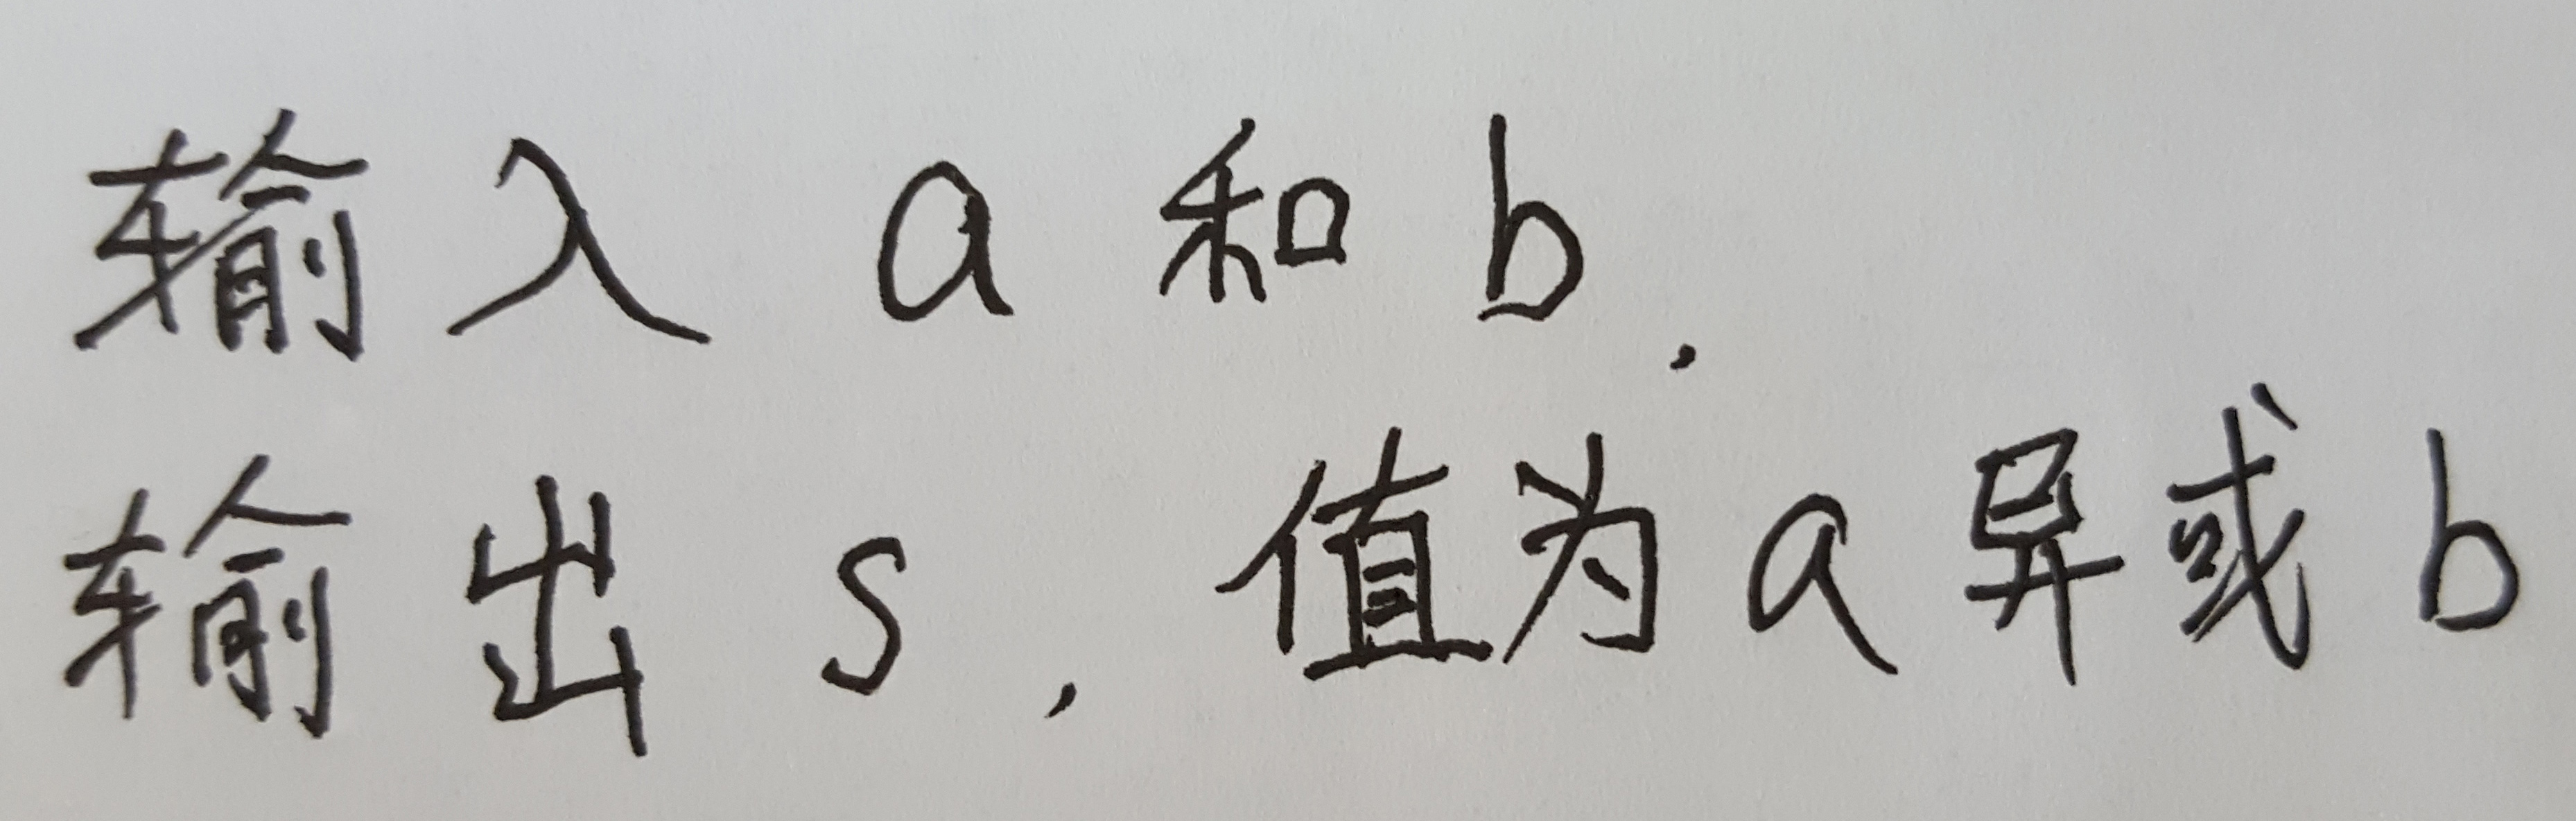 输入 a 和 b.
输出 s, 值为 a 异或 b